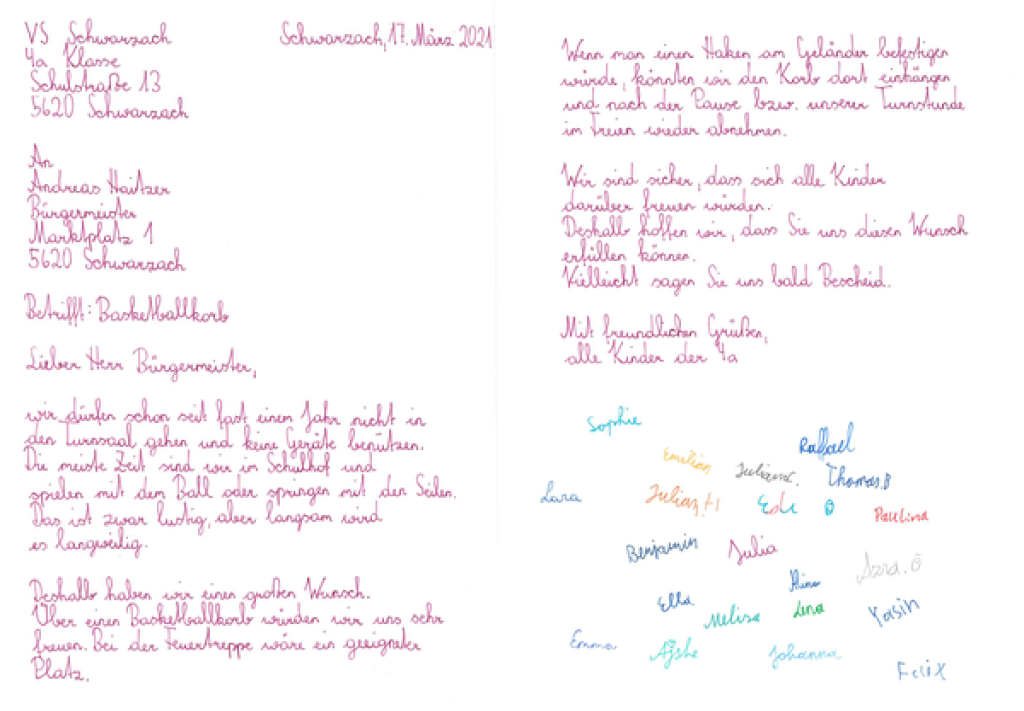 VS Schwarzach
Schwarzach, 17. März 2021
4a Klasse
Schulstraße 13
5620 Schwarzach
An
Andreas Haitzer
Bürgermeister
Marktplatz 1
5620 Schwarzach
Betrifft: Basketballkorb
Lieber Herr Bürgermeister,
wir dürfen schon seit fast einem Jahr nicht in
den Turnsaal gehen und keine Geräte benützen.
Die meiste Zeit sind wir im Schulhof und
spielen mit dem Ball oder springen mit den Seilen.
Das ist zwar lustig, aber langsam wird
es langweilig.
Deshalb haben wir einen großen Wunsch.
Über einen Basketballkorb würden wir uns sehr
freuen. Bei der Feuertreppe wäre ein geeigneter
Platz.
Wenn man einen Haken am Geländer befestigen
würde, könnten wir den Korb dort einhängen
und nach der Pause bzw. unserer Turnstunde
im Freien wieder abnehmen.
Wir sind sicher, dass sich alle Kinder
darüber freuen würden.
Deshalb hoffen wir, dass Sie uns diesen Wunsch
erfüllen können.
Vielleicht sagen Sie uns bald Bescheid.
Mit freundlichen Grüßen,
alle Kinder der 4a
Sophie
Raffael
Emilian
Thomas.B
Lara
Julian H
Paulina
Benjamin
Julia
Azra. Ö
Ella
Melisa
Lena
Yasin
Emma
Ajshe
Johanna
Felix